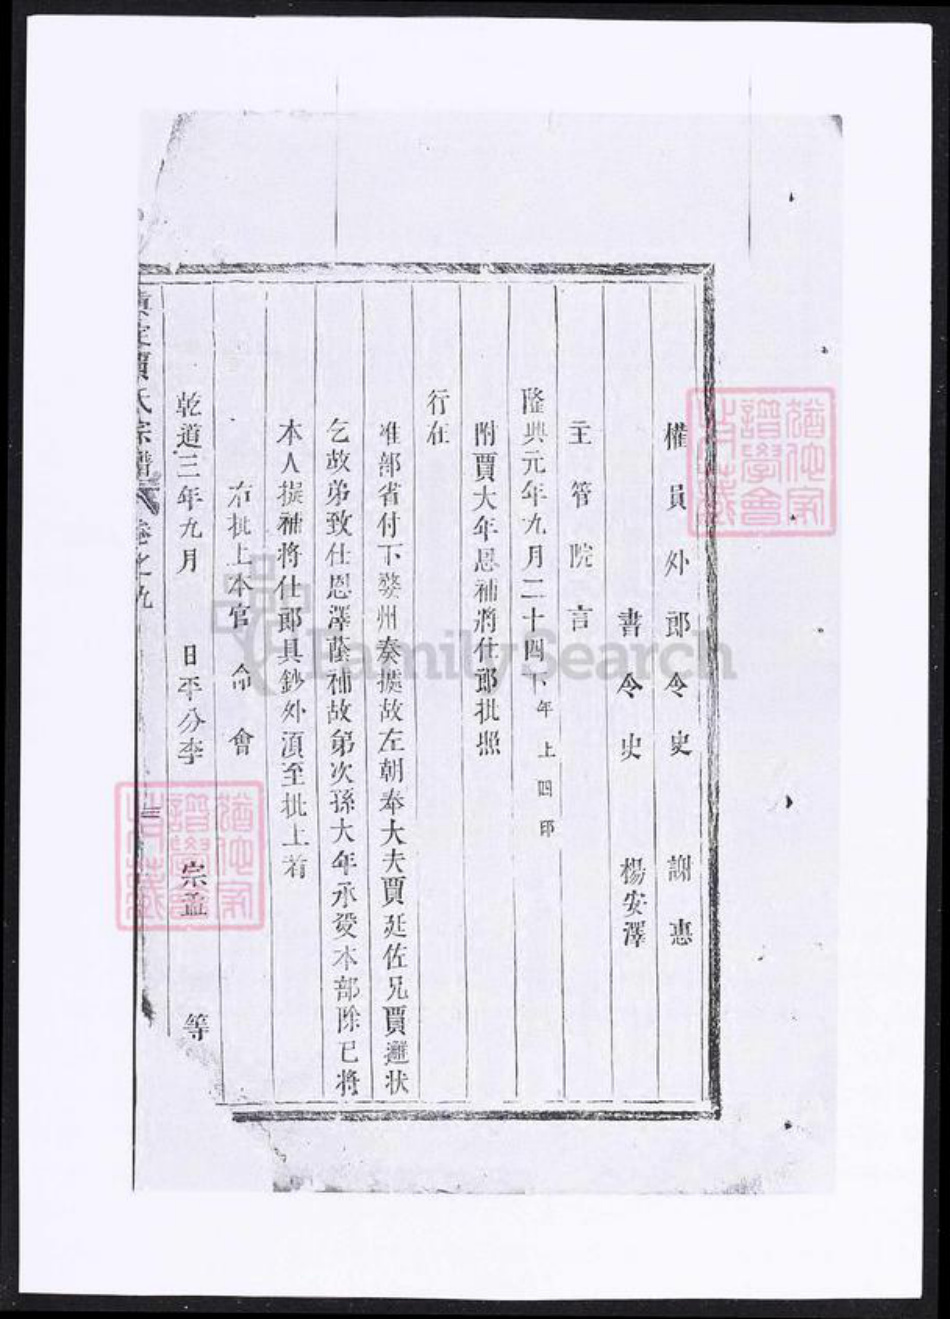 權員外郎令史 謝惠
書令史 楊安澤
主管院言
隆興元年九月二十四下年上四印
附賈大年恩補將仕郎批照
行在
准部省付下婺州奏據故左朝奉大夫賈廷佐兄賈邁狀
乞故弟致仕恩澤蔭補故弟次孫大年承受本部除已將
本人擬補將仕郎具鈔外須至批上者
右批上本官命會
乾道三年九月 日平分李 宗蓋 等
賈氏宗譜 卷之九
FamilySearch